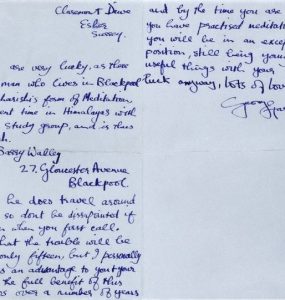 Claremont Drive
Esher
Surrey.
are very lucky, as there
man who lives in Blackpool
form of Meditation,
time in Himalayas with
study group, and is thus
Barry Walley
27, Gloucester Avenue
Blackpool.
he does travel around
so dont be dissapointed if
when you first call.
that the trouble will be
only fifteen, but I personally
an advantage to
the full benefit of this
over a number of years
and by the time you are
you have practised
you will be in an
position, still
useful things with your
luck anyway, lots of love